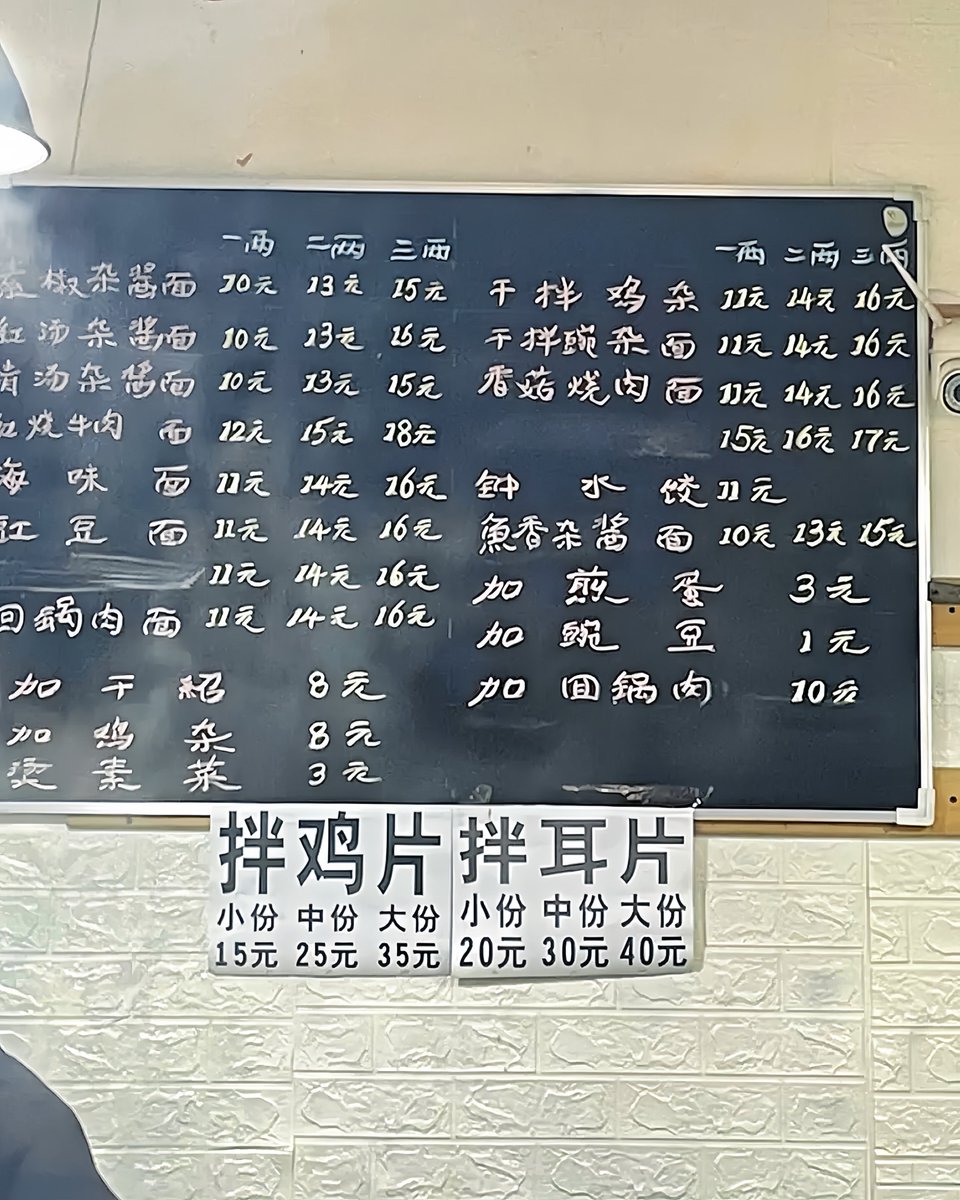 一两 二两 三两
椒杂酱面 10元 13元 15元
红汤杂酱面 10元 13元 15元
清汤杂酱面 10元 13元 15元
红烧牛肉面 12元 15元 18元
海味面 11元 14元 16元
豇豆面 11元 14元 16元
11元 14元 16元
回锅肉面 11元 14元 16元
加干绍 8元
加鸡杂 8元
烫素菜 3元
一两 二两 三两
干拌鸡杂 11元 14元 16元
干拌豌杂面 11元 14元 16元
香菇烧肉面 11元 14元 16元
15元 16元 17元
钟水饺 11元
魚香杂酱面 10元 13元 15元
加煎蛋 3元
加豌豆 1元
加回锅肉 10元
拌鸡片
小份 中份 大份
15元 25元 35元
拌耳片
小份 中份 大份
20元 30元 40元